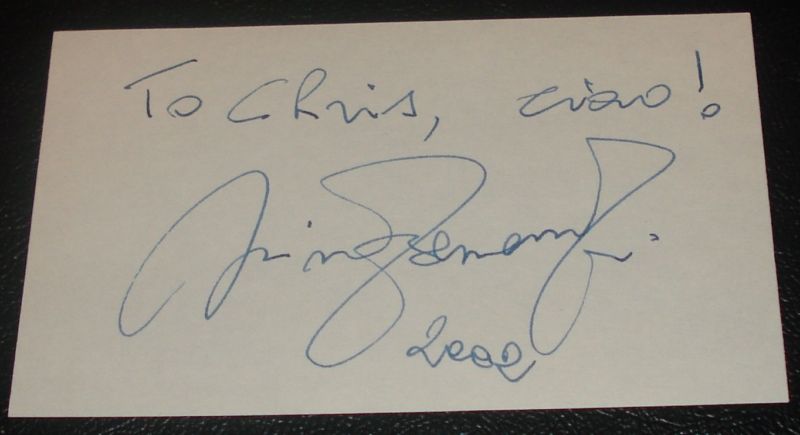 To Chris, ciao!
2002